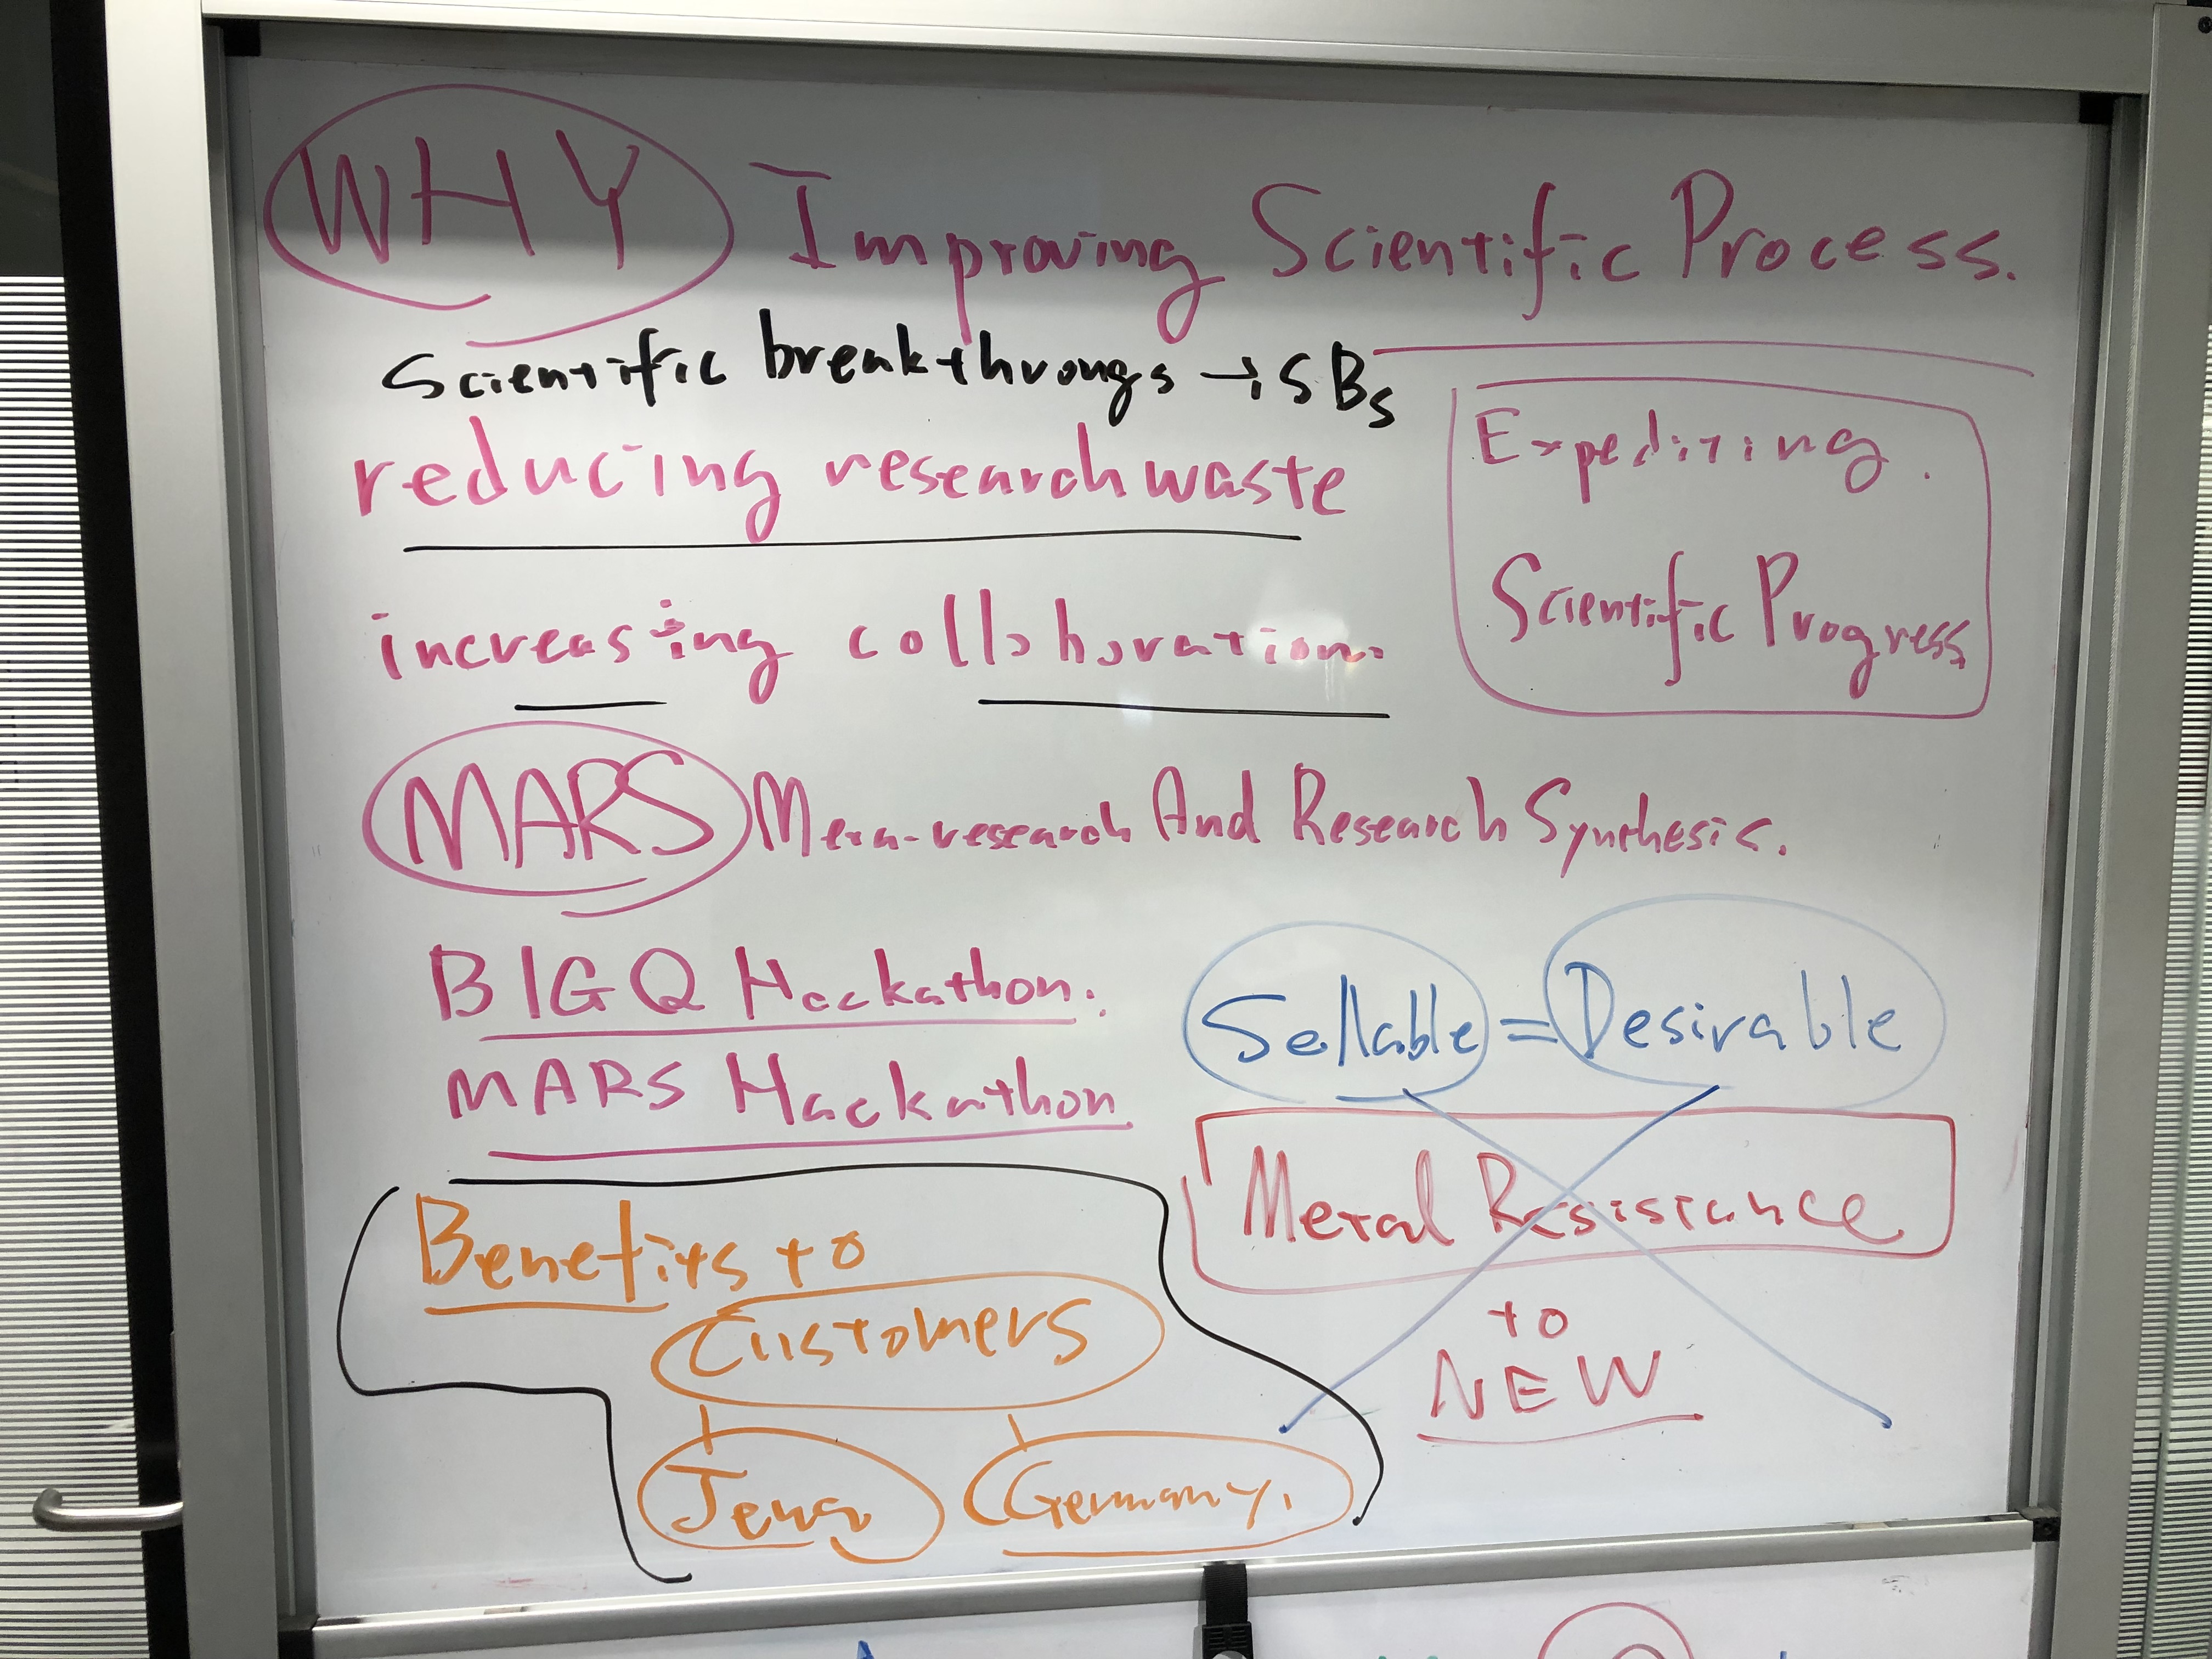 WHY Improving Scientific Process.
Scientific breakthroughs → SBs
reducing research waste
Expediting.
Scientific Progress
increasing collaboration.
MARS Meta-research And Research Synthesis.
BIG Q Hackathon.
MARS Hackathon
Sellable = Desirable
Metal Resistance
to
NEW
Benefits to
Customers
Jena Germany.